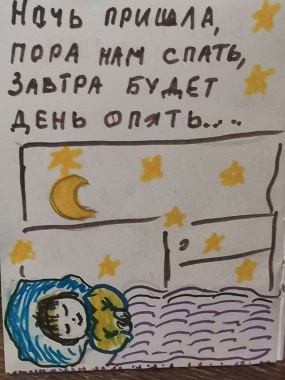 Ночь пришла,
пора нам спать,
завтра будет
день опять....